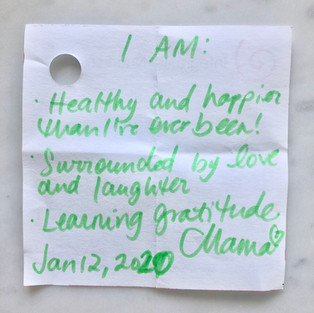 I AM:
· Healthy and happier
than I've ever been!
· Surrounded by love
and laughter
· Learning gratitude.
Mama
Jan 12, 2020